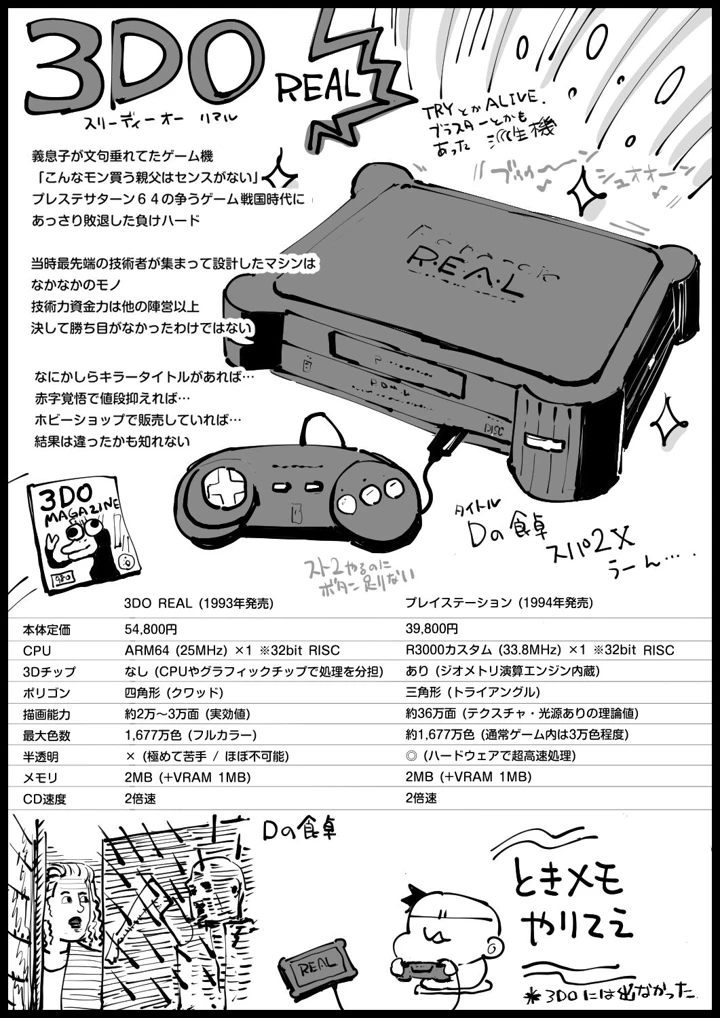 3DO REAL
スリーディーオー リアル
TRYとかALIVE.
ブラスターとかも
あった 派生機
義息子が文句垂れてたゲーム機
「こんなモン買う親父はセンスがない」
プレステサターン６４の争うゲーム戦国時代に
あっさり敗退した負けハード
シュオオーン♪
REAL
当時最先端の技術者が集まって設計したマシンは
なかなかのモノ
技術力資金力は他の陣営以上
決して勝ち目がなかったわけではない
なにかしらキラータイトルがあれば…
赤字覚悟で値段抑えれば…
ホビーショップで販売していれば…
結果は違ったかも知れない
DISC
3DO
MAGAZINE
タイトル
Dの食卓
スパ2X
うーん….
スト2やるのに
ボタン足りない
3DO REAL (1993年発売) プレイステーション (1994年発売)
本体定価 54,800円 39,800円
CPU ARM64 (25MHz) ×1 ※32bit RISC R3000カスタム (33.8MHz) ×1 ※32bit RISC
3Dチップ なし (CPUやグラフィックチップで処理を分担) あり (ジオメトリ演算エンジン内蔵)
ポリゴン 四角形 (クワッド) 三角形 (トライアングル)
描画能力 約2万～3万面 (実効値) 約36万面 (テクスチャ・光源ありの理論値)
最大色数 1,677万色 (フルカラー) 約1,677万色 (通常ゲーム内は3万色程度)
半透明 × (極めて苦手 / ほぼ不可能) ◎ (ハードウェアで超高速処理)
メモリ 2MB (+VRAM 1MB) 2MB (+VRAM 1MB)
CD速度 2倍速 2倍速
Dの食卓
ときメモ
やりてえ
REAL
＊3DOには出なかった